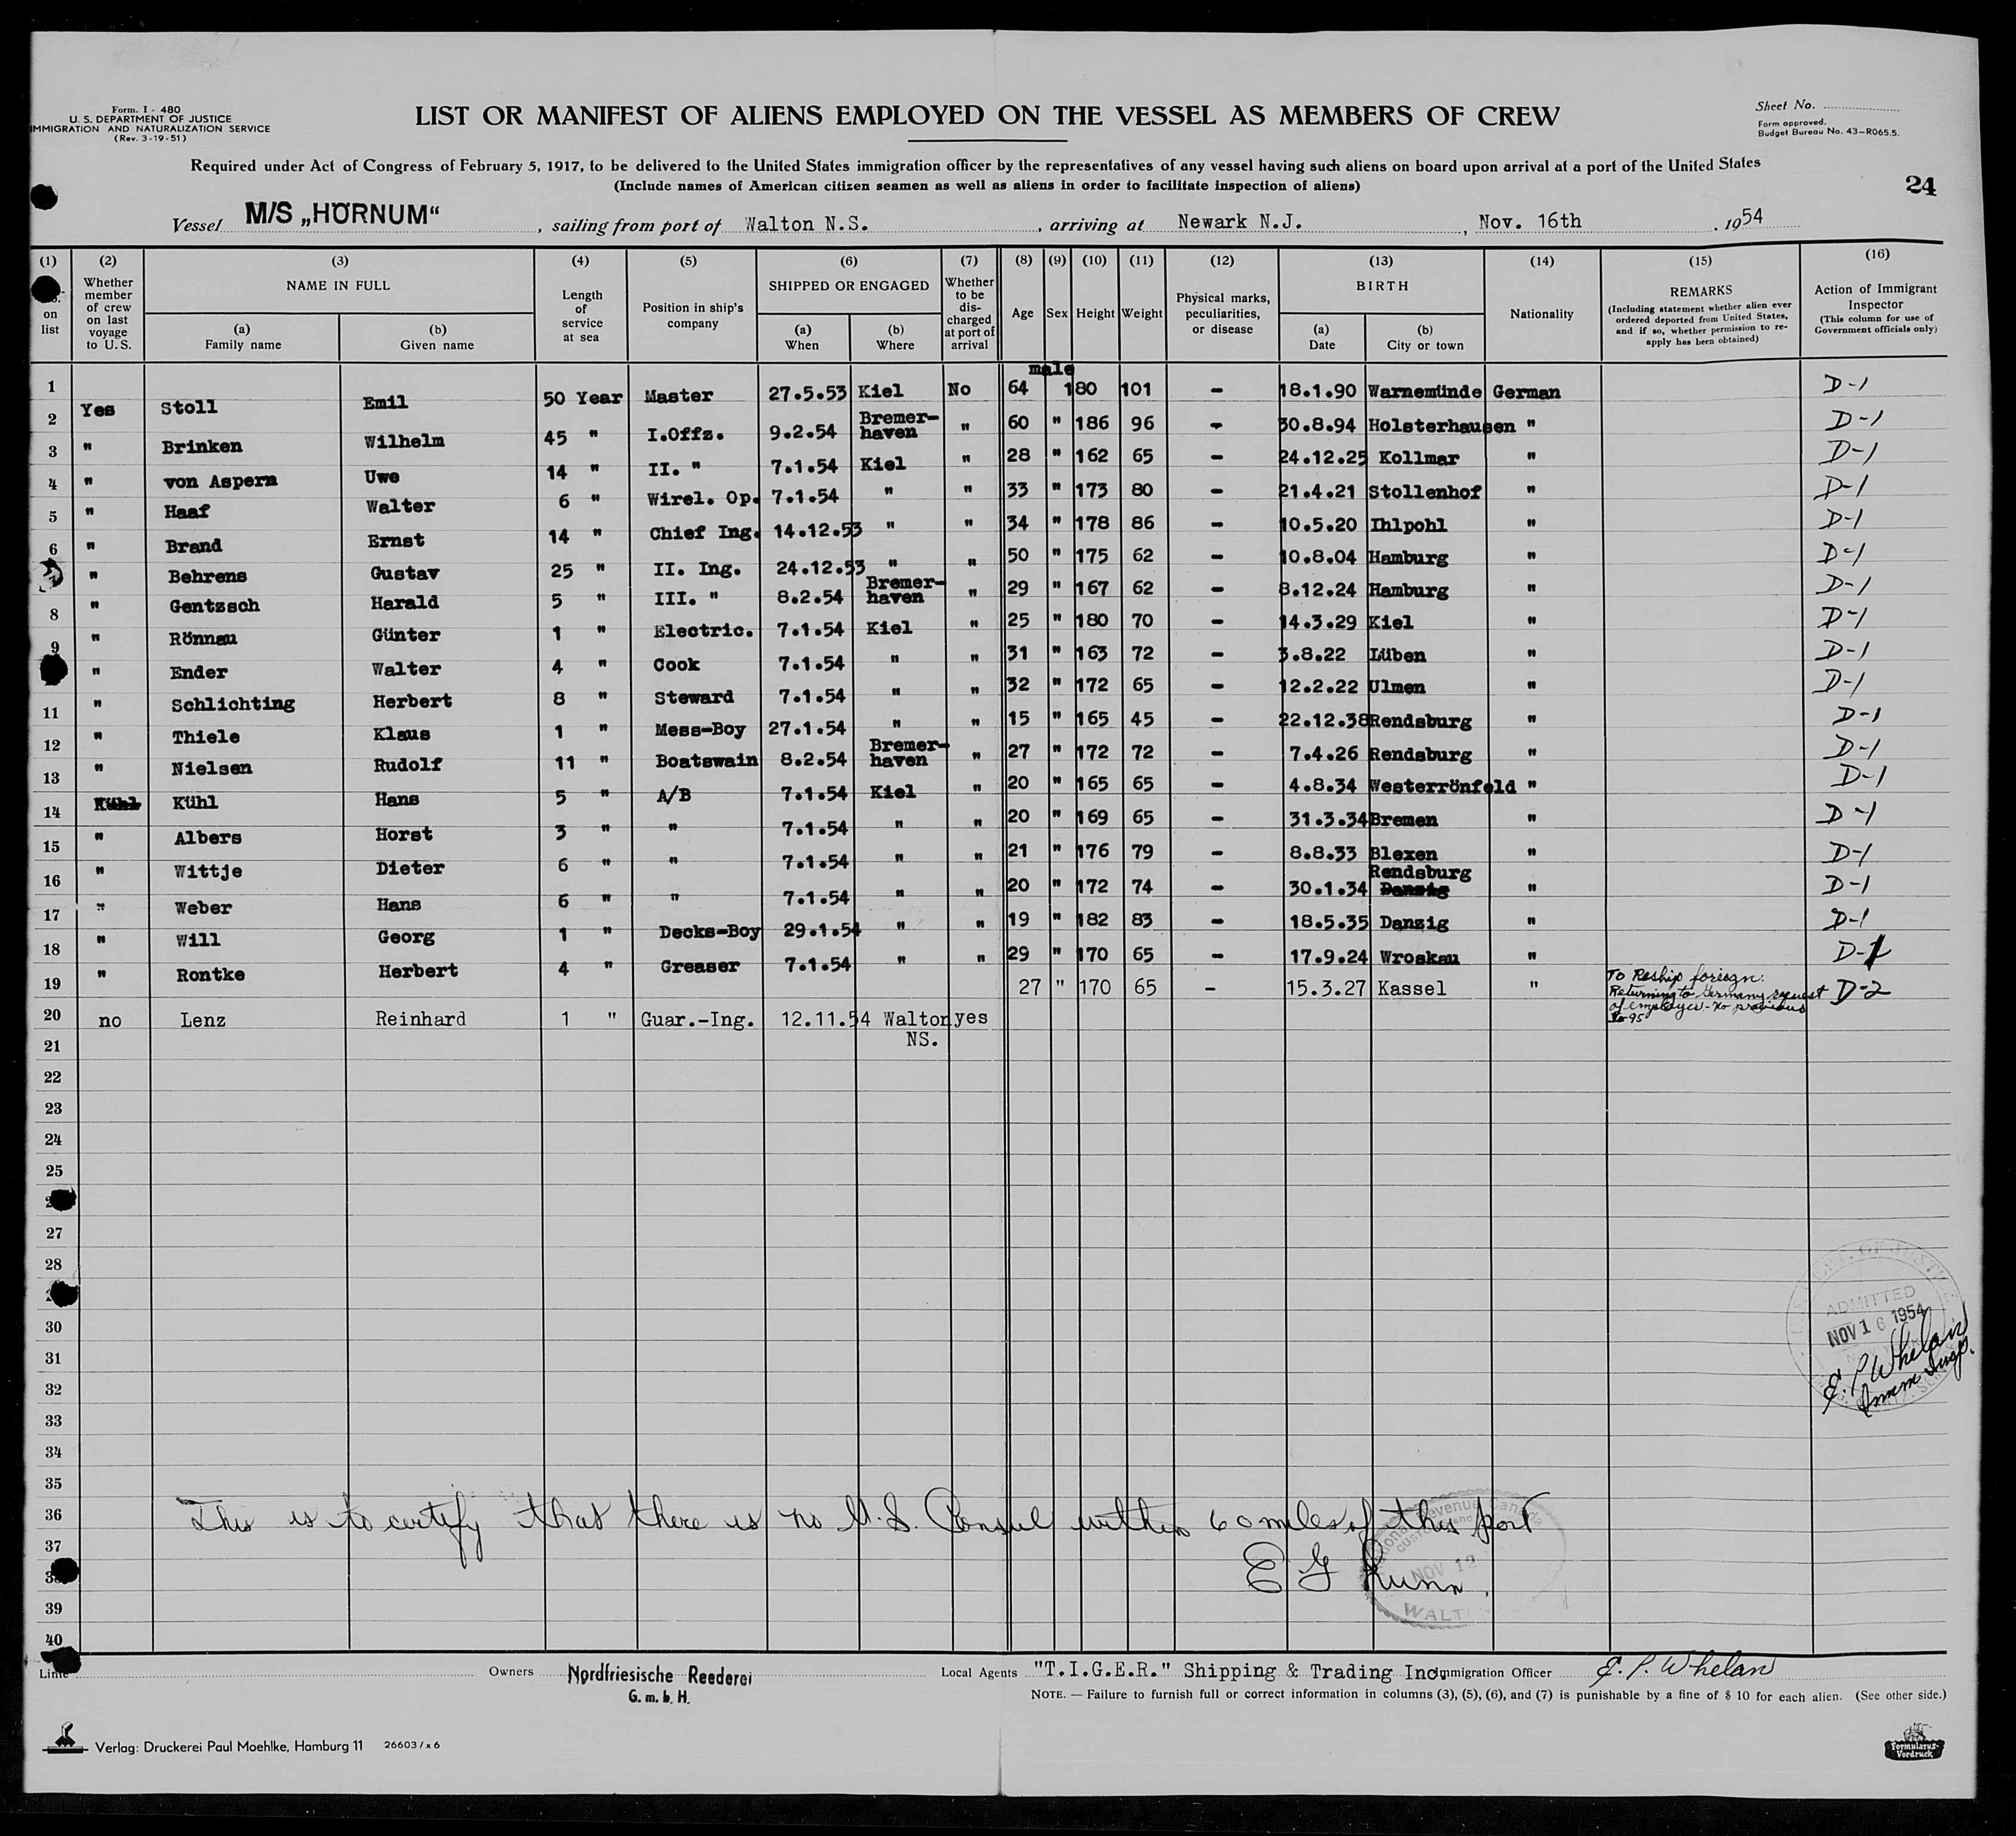 Form. I - 480
U. S. DEPARTMENT OF JUSTICE
IMMIGRATION AND NATURALIZATION SERVICE
(Rev. 3-19-51)
LIST OR MANIFEST OF ALIENS EMPLOYED ON THE VESSEL AS MEMBERS OF CREW
Sheet No.
Form approved.
Budget Bureau No. 43-R065.5.
Required under Act of Congress of February 5, 1917, to be delivered to the United States immigration officer by the representatives of any vessel having such aliens on board upon arrival at a port of the United States
(Include names of American citizen seamen as well as aliens in order to facilitate inspection of aliens)
24
Vessel M/S „HÖRNUM“, sailing from port of Walton N.S., arriving at Newark N.J., Nov. 16th, 1954
(1) on list
(2) Whether member of crew on last voyage to U. S.
(3) NAME IN FULL (a) Family name (b) Given name
(4) Length of service at sea
(5) Position in ship's company
(6) SHIPPED OR ENGAGED (a) When (b) Where
(7) Whether to be dis-charged at port of arrival
(8) Age
(9) Sex
(10) Height
(11) Weight
(12) Physical marks, peculiarities, or disease
(13) BIRTH (a) Date (b) City or town
(14) Nationality
(15) REMARKS (Including statement whether alien ever ordered deported from United States, and if so, whether permission to re-apply has been obtained)
(16) Action of Immigrant Inspector (This column for use of Government officials only)
1 Yes Stoll Emil 50 Year Master 27.5.53 Kiel No 64 male 180 101 - 18.1.90 Warnemünde German D-1
2 " Brinken Wilhelm 45 " I.Offz. 9.2.54 Bremer-haven " 60 " 186 96 - 30.8.94 Holsterhausen " D-1
3 " von Aspern Uwe 14 " II. " 7.1.54 Kiel " 28 " 162 65 - 24.12.25 Kollmar " D-1
4 " Haaf Walter 6 " Wirel. Op. 7.1.54 " " 33 " 173 80 - 21.4.21 Stollenhof " D-1
5 " Brand Ernst 14 " Chief Ing. 14.12.53 " " 34 " 178 86 - 10.5.20 Ihlpohl " D-1
6 " Behrens Gustav 25 " II. Ing. 24.12.53 " " 50 " 175 62 - 10.8.04 Hamburg " D-1
" Gentzsch Harald 5 " III. " 8.2.54 Bremer-haven " 29 " 167 62 - 8.12.24 Hamburg " D-1
8 " Rönnau Günter 1 " Electric. 7.1.54 Kiel " 25 " 180 70 - 14.3.29 Kiel " D-1
9 " Ender Walter 4 " Cook 7.1.54 " " 31 " 163 72 - 3.8.22 Lüben " D-1
" Schlichting Herbert 8 " Steward 7.1.54 " " 32 " 172 65 - 12.2.22 Ulmen " D-1
11 " Thiele Klaus 1 " Mess-Boy 27.1.54 " " 15 " 165 45 - 22.12.38 Rendsburg " D-1
12 " Nielsen Rudolf 11 " Boatswain 8.2.54 Bremer-haven " 27 " 172 72 - 7.4.26 Rendsburg " D-1
13 Kühl Kühl Hans 5 " A/B 7.1.54 Kiel " 20 " 165 65 - 4.8.34 Westerrönfeld " D-1
14 " Albers Horst 3 " " 7.1.54 " " 20 " 169 65 - 31.3.34 Bremen " D-1
15 " Wittje Dieter 6 " " 7.1.54 " " 21 " 176 79 - 8.8.33 Blexen " D-1
16 " Weber Hans 6 " " 7.1.54 " " 20 " 172 74 - 30.1.34 Rendsburg Danzig " D-1
17 " Will Georg 1 " Decks-Boy 29.1.54 " " 19 " 182 83 - 18.5.35 Danzig " D-1
18 " Rontke Herbert 4 " Greaser 7.1.54 " " 29 " 170 65 - 17.9.24 Wroskau " D-1
19 no Lenz Reinhard 1 " Guar.-Ing. 12.11.54 Walton NS. yes 27 " 170 65 - 15.3.27 Kassel " To Reship foreign: Returning to Germany request of employer - No previous I-95 D-2
20
21
22
23
24
25
27
28
30
31
32
33
34
35
36
37
39
40
ADMITTED
NOV 16 1954
E. P. Whelan
Imm Insp.
This is to certify that there is no U.S. Consul within 60 miles of this port
E G
NOV 12
WALT
Line
Owners Nordfriesische Reederei G. m. b. H.
Local Agents "T.I.G.E.R." Shipping & Trading Inc.
Immigration Officer E. P. Whelan
NOTE. — Failure to furnish full or correct information in columns (3), (5), (6), and (7) is punishable by a fine of $ 10 for each alien. (See other side.)
Verlag: Druckerei Paul Moehlke, Hamburg 11 26603/x6
Formularus-Vordruck